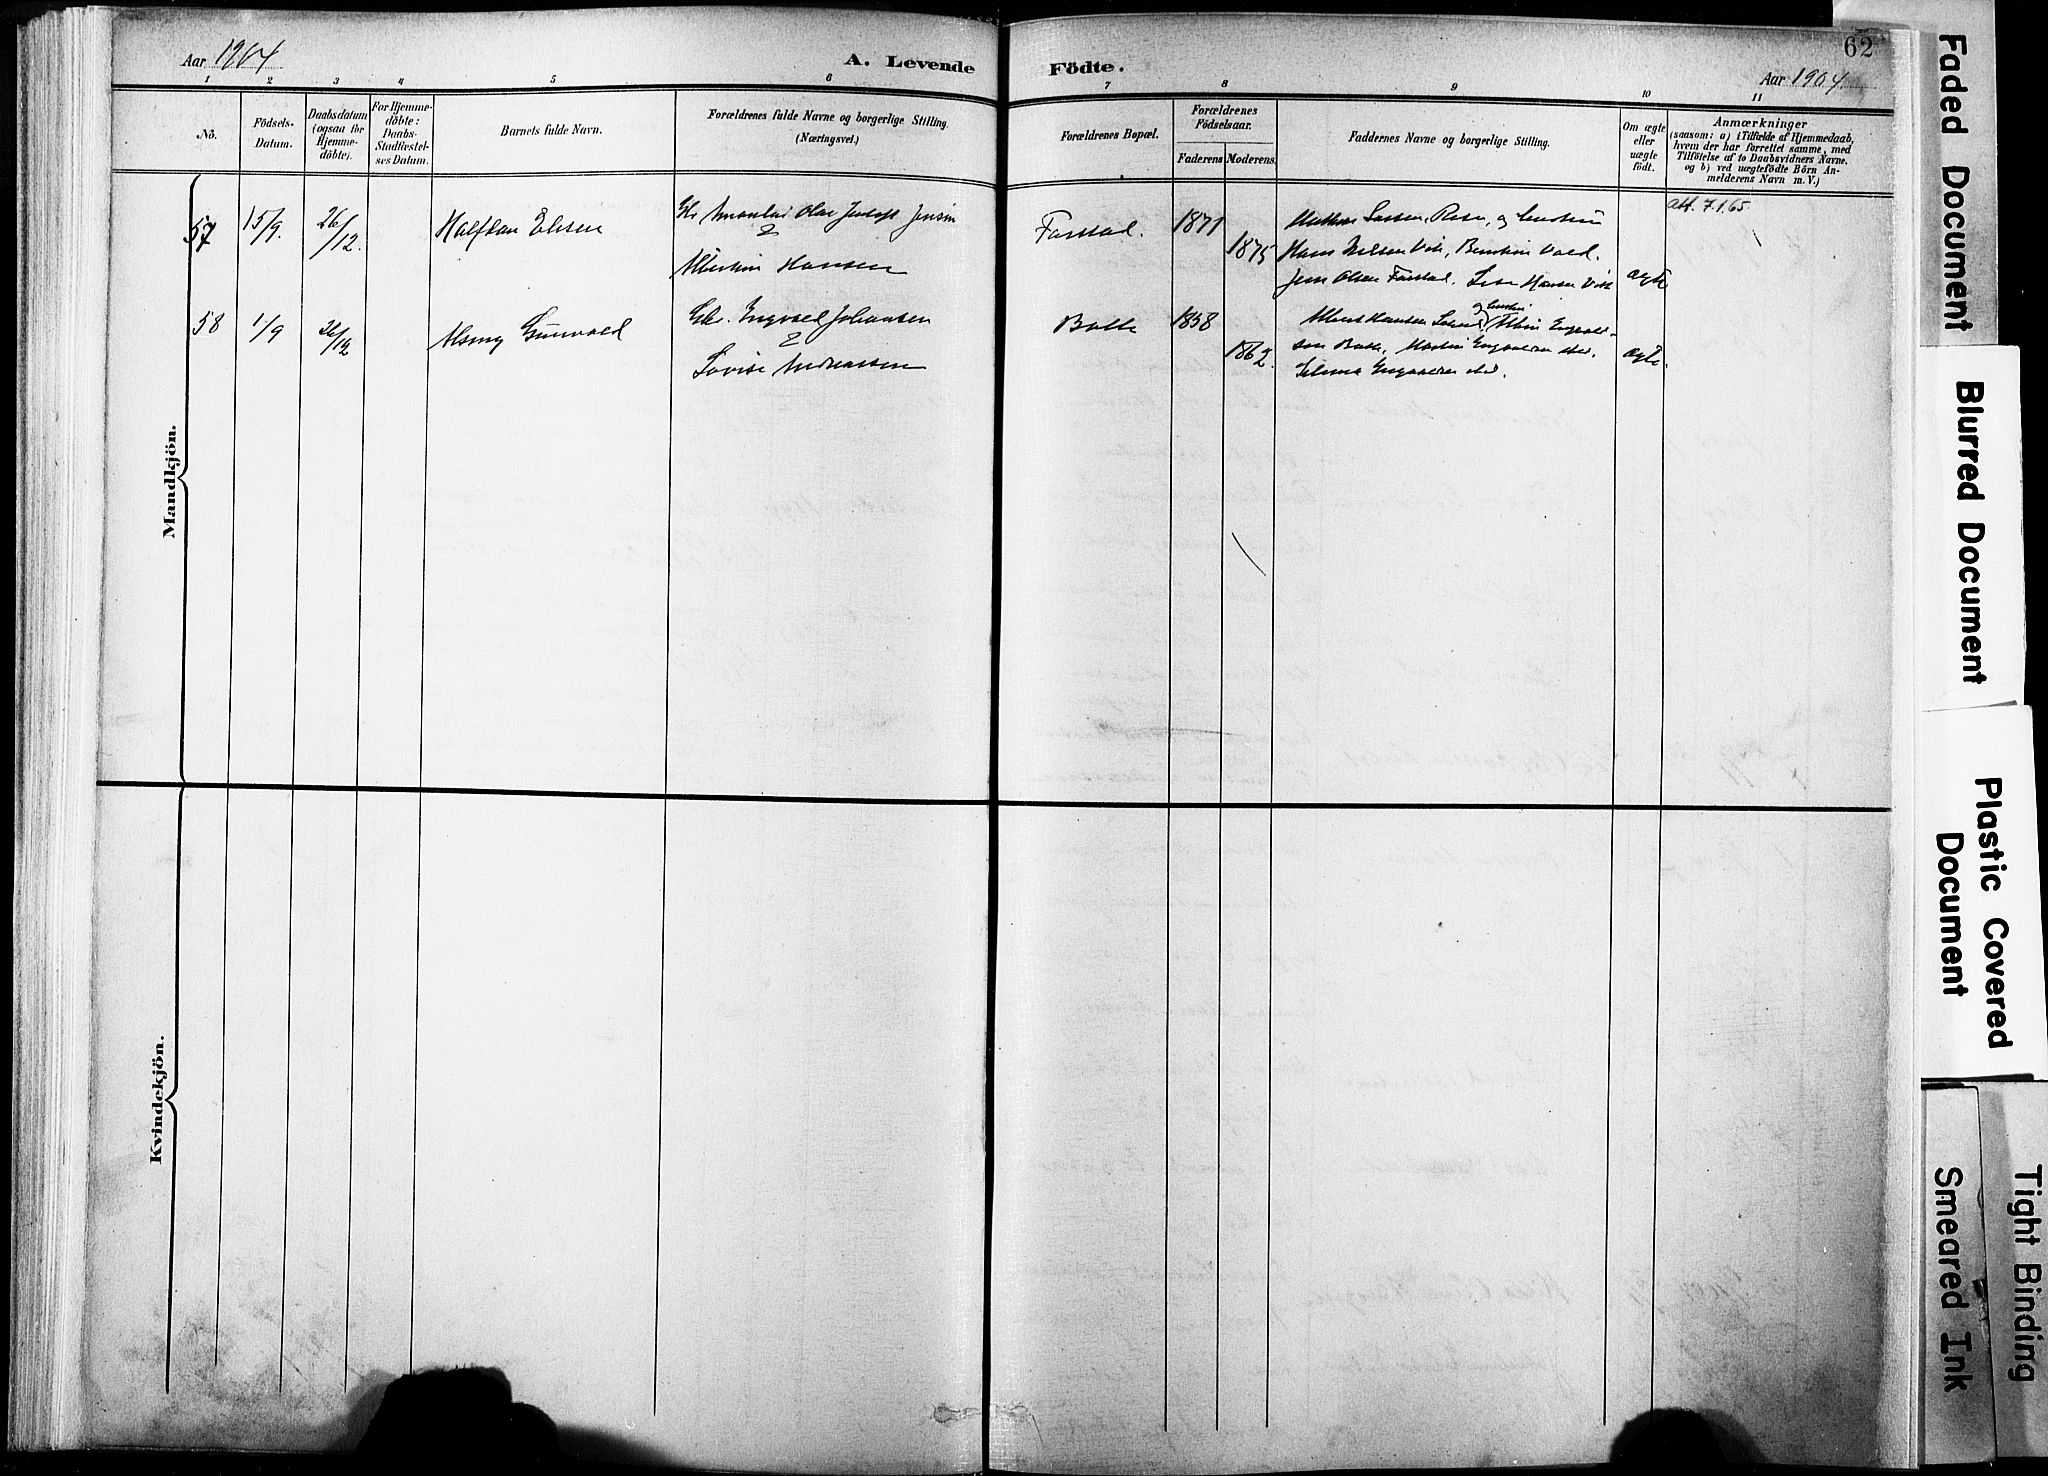 Aar 1904
A. Levende Födte.
62
Aar 1904
1 2 3 4 5 6 7 8 9 10 11
No.
Födsels-
Datum.
Daabsdatum
(ogsaa för
Hjemme-
döbte).
For Hjemme-
döbte:
Daabs-
Stadfæstel-
ses Datum.
Barnets fulde Navn.
Forældrenes fulde Navne og borgerlige Stilling
(Næringsvei.)
Forældrenes Bopæl.
Forældrenes
Födselsaar.
Faderens
Moderens.
Faddernes Navne og borgerlige Stilling.
Om ægte
eller
uægte
födt.
Anmærkninger
(saasom: a) i Tilfælde af Hjemmedaab,
hvem der har forrettet samme, med
Tilföielse af to Daabsvidners Navne.
og b) ved uægtefödte Börn An-
melderens Navn m. V.)
Mandkjön.
57
15/9.
26/12.
Halfdan
Olav Jensen
Albertine Hansen
Farstad.
1871
1875
Larsen, og hustru
Hans Nielsen Vik,
Jens Olsen Farstad. Hansen Vik
ægte
att. 7.1.65.
58
1/9
26/12
Gunvald
Gbr. Ingvald Johansen
&
Lovise Andreassen
1858
1862.
ægte.
Kvindekjön.
Faded Document
Blurred Document
Plastic Covered
Document
Tight Binding
Smeared Ink